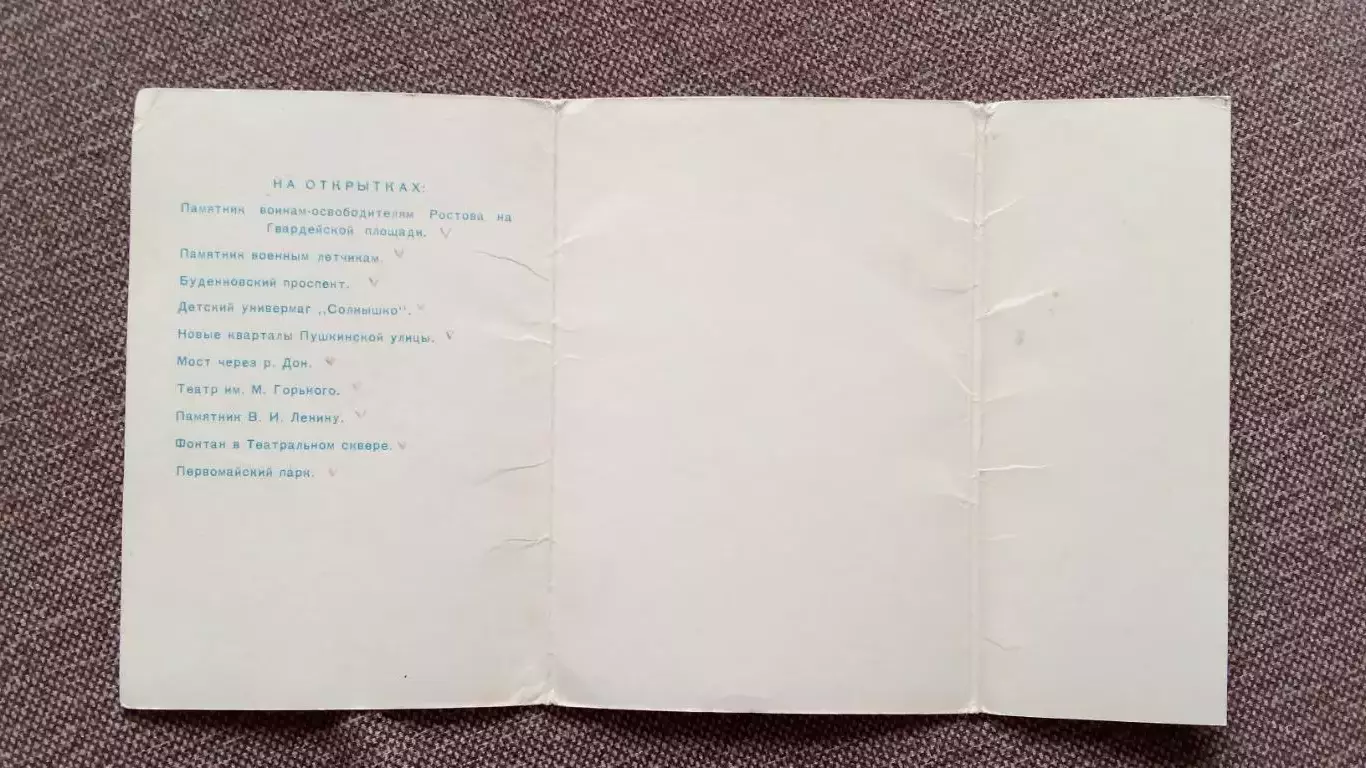 НА ОТКРЫТКАХ:
Памятник воинам-освободителям Ростова на
Гвардейской площади.
Памятник военным летчикам.
Буденновский проспект.
Детский универмаг „Солнышко".
Новые кварталы Пушкинской улицы.
Мост через р. Дон.
Театр им. М. Горького.
Памятник В. И. Ленину.
Фонтан в Театральном сквере.
Первомайский парк.